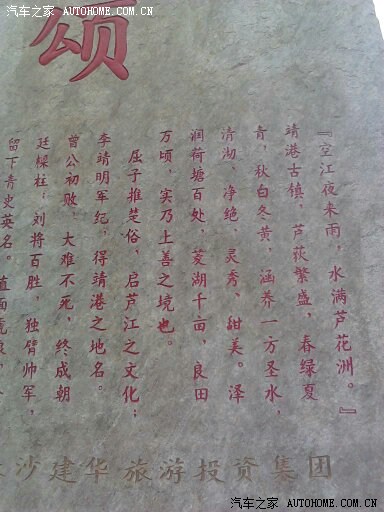 汽车之家 AUTOHOME.COM.CN
颂
『空江夜来雨，水满芦花洲。』
靖港古镇，芦荻繁盛，春绿夏
青，秋白冬黄，涵养一方圣水，
清沏、净绝、灵秀、甜美。泽
润荷塘百处，菱湖千亩，良田
万顷，实乃上善之境也。
屈子推楚俗，启芦江之文化；
李靖明军纪，得靖港之地名。
曾公初败，大难不死，终成朝
廷樑柱；刘将百胜，独臂帅军，
留下青史英名。
沙建华旅游投资集团
汽车之家 AUTOHOME.COM.CN